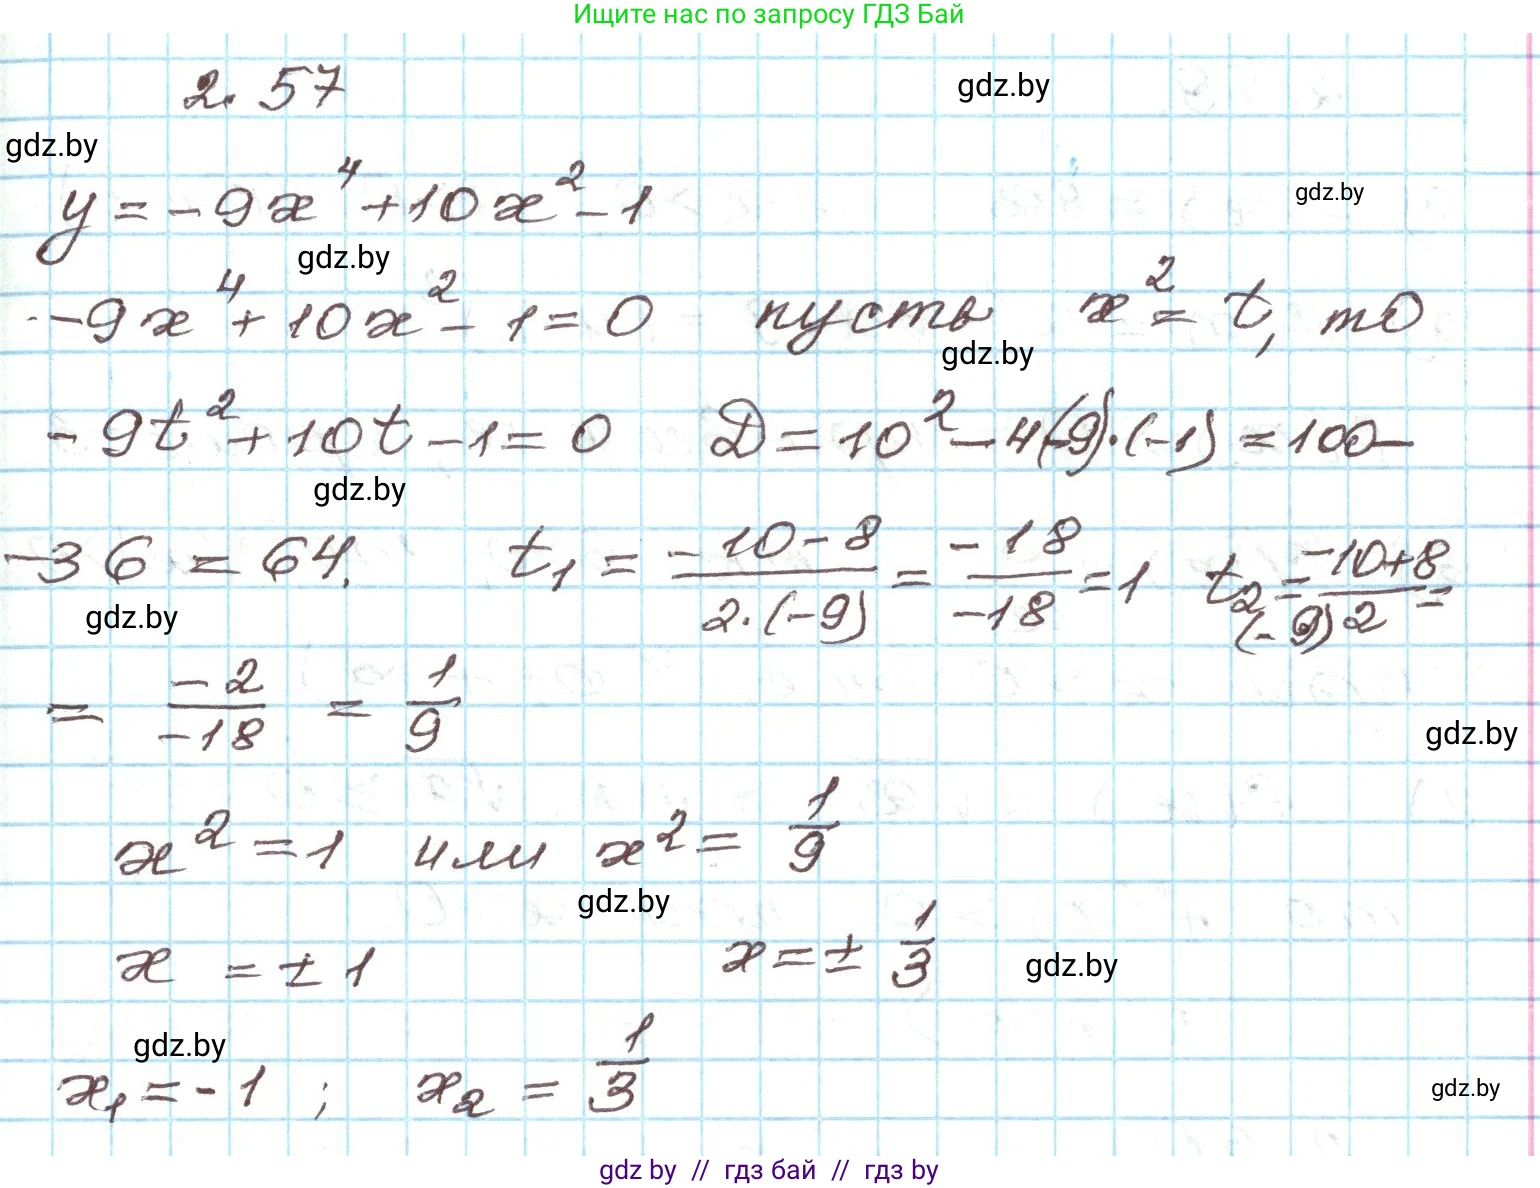 Ищите нас по запросу ГДЗ Бай
2.57
gdz.by
gdz.by
y = -9x⁴ + 10x² - 1
gdz.by
gdz.by
-9x⁴ + 10x² - 1 = 0 пусть x² = t, то
gdz.by
-9t² + 10t - 1 = 0 D = 10² - 4(-9)·(-1) = 100 -
gdz.by
-36 = 64. t₁ = (-10-8)/(2·(-9)) = (-18)/(-18) = 1 t₂ = (-10+8)/((-9)2) =
gdz.by
= (-2)/(-18) = 1/9
gdz.by
x² = 1 или x² = 1/9
gdz.by
x = ±1 x = ± 1/3
gdz.by
gdz.by
x₁ = -1 ; x₂ = 1/3
gdz.by
gdz by // гдз бай // гдз by